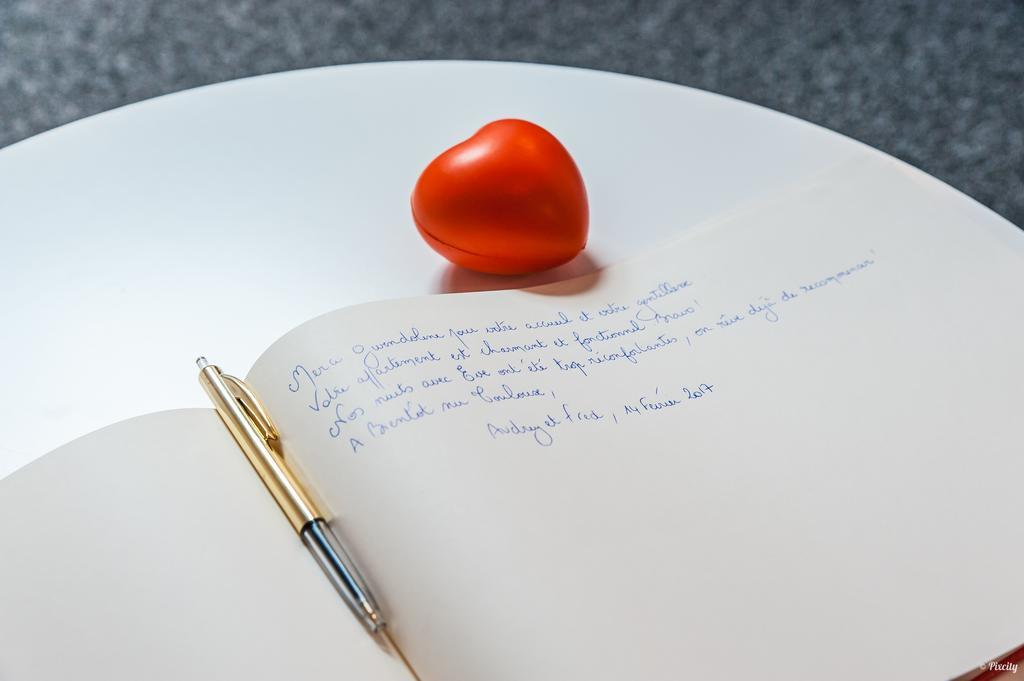 Merci Gwendoline pour votre accueil et votre gentillesse
Votre appartement est charmant et fonctionnel. Bravo!
Nos nuits avec Eve ont été trop réconfortantes, on rêve déjà de recommencer!
A Bientôt sur Toulouse,
Audrey et Fred, 14 Février 2017
© Pixcity